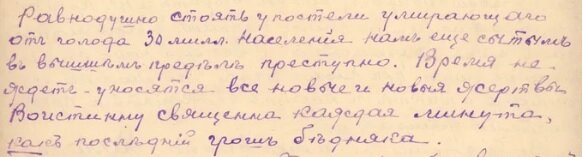 Равнодушно стоять у постели умирающаго
отъ голода 30 милл. населения намъ еще сытымъ
въ вышшимъ предѣлъ преступно. Время не
ждетъ - уносятся все новые и новыя жертвы
Воистинну священна каждая минута,
какъ послѣдній грошъ бѣдняка.